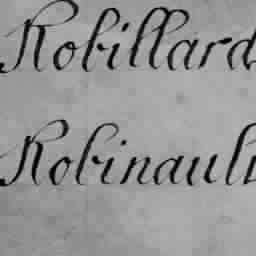 Robillard
Robinaul